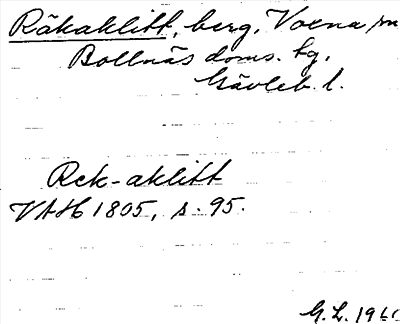 Räkaklitt, berg, Voxna sn
Bollnäs doms. tg.
Gävleb. l.
Rek-aklitt
VAH 1805, s. 95.
G. L. 19